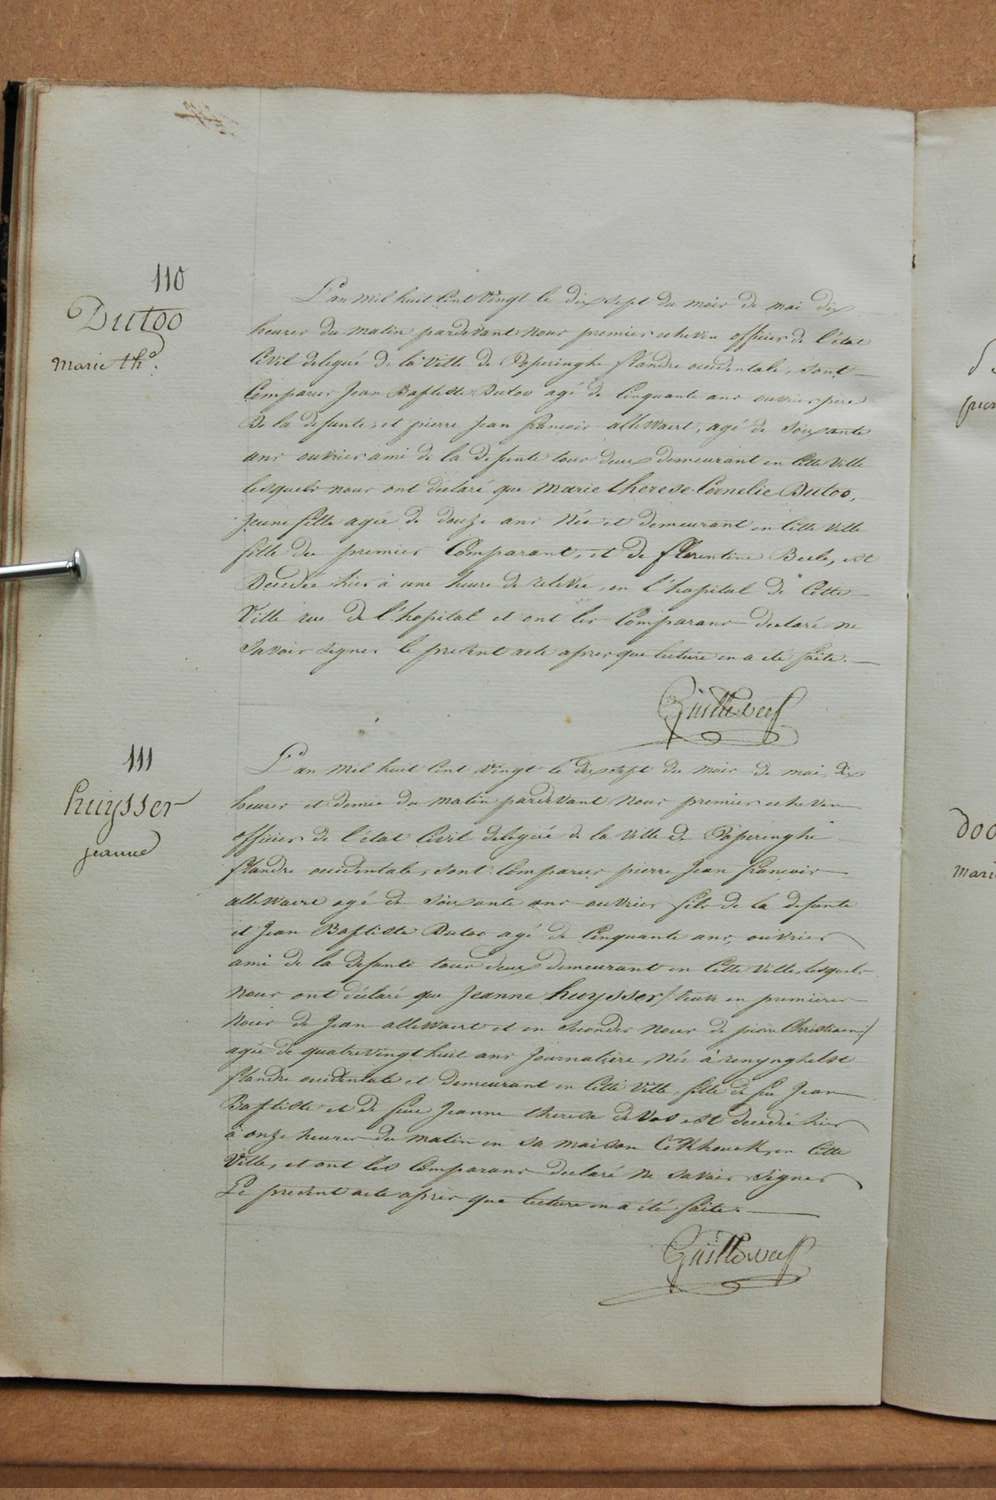 110
Dutoo
marie th.e
L'an mil huit cent vingt le dix sept du mois de mai dix
heures du matin pardevant nous premier echevin officier de l'état
civil delegué de la ville de Poperinghe flandre occidentale, sont
comparus Jean Baptiste Dutoo agé de cinquante ans ouvrier père
de la defunte, et pierre Jean francois allewaert, agé de soixante
ans ouvrier ami de la defunte tous deux demeurant en cette ville
lesquels nous ont déclaré que marie therese Cornelie Dutoo,
jeune fille agée de douze ans née et demeurant en cette ville
fille du premier comparant, et de florentine Beele, est
decedée hier à une heure de relevée, en l'hopital de cette
ville rue de l'hopital et ont les comparans declaré ne
savoir signer le present acte apres que lecture en a été faite.
111
huysser
jeanne
L'an mil huit cent vingt le dix sept du mois de mai, dix
heures et demie du matin pardevant nous premier echevin
officier de l'état civil delégué de la ville de Poperinghe
flandre occidentale, sont comparus pierre Jean francois
allewaert agé de soixante ans ouvrier fils de la defunte
et Jean Baptiste Dutoo agé de cinquante ans, ouvrier
ami de la defunte tous deux demeurant en cette ville, lesquels
nous ont déclaré que Jeanne huysser (veuve en premieres
noces de Jean allewaert et en secondes noces de pierre Christiaen)
agée de quatrevingt huit ans journaliere, née à renynghelst
flandre occidentale et demeurant en cette ville, fille de feu Jean
Baptiste et de feue Jeanne theresa deVos est decedée hier
à onze heures du matin en sa maison en cette
ville, et ont les comparans declaré ne savoir signer
Le present acte apres que lecture en a été faite.